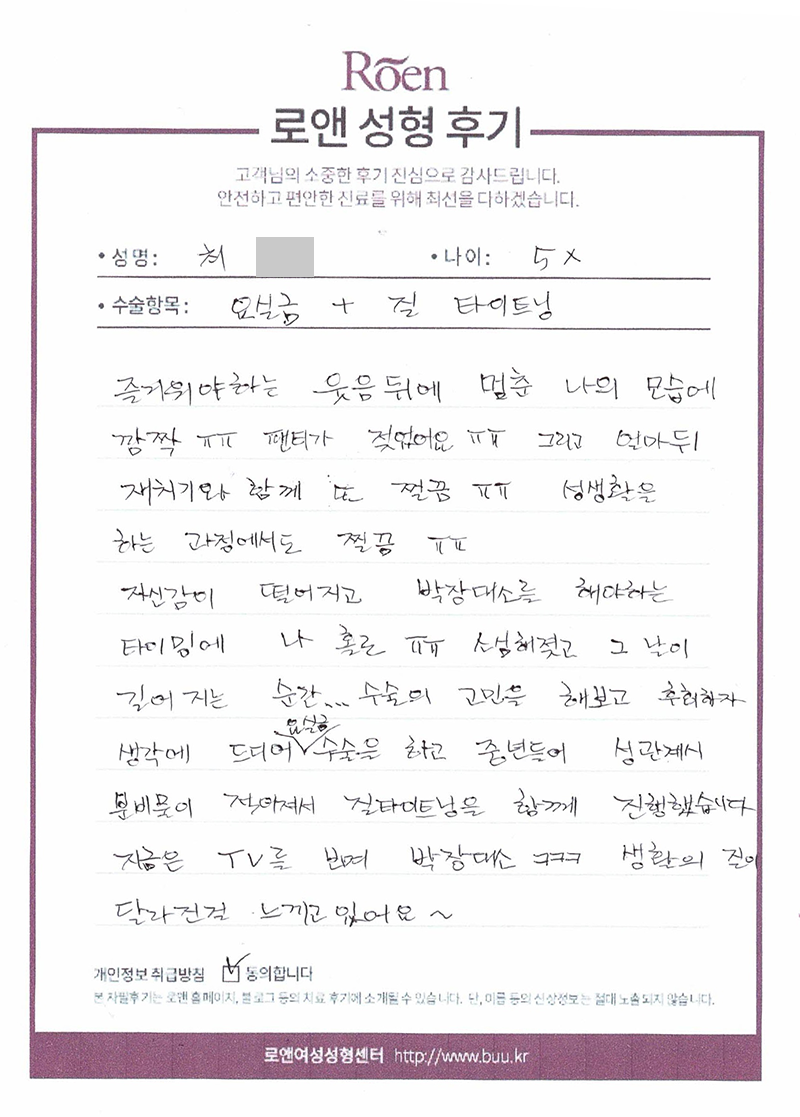 Roen
로앤 성형 후기
고객님의 소중한 후기 진심으로 감사드립니다.
안전하고 편안한 진료를 위해 최선을 다하겠습니다.
• 성명: 최 • 나이: 5x
• 수술항목: 요실금 + 질 타이트닝
즐거워야하는 웃음뒤에 멈춘 나의 모습에
깜짝 ㅠㅠ 팬티가 젖었어요 ㅠㅠ 그리고 얼마뒤
재치기와 함께 또 찔끔 ㅠㅠ 성생활을
하는 과정에서도 찔끔 ㅠㅠ
자신감이 떨어지고 박장대소를 해야하는
타이밍에 나 홀로 ㅠㅠ 소심해졌고 그 날이
길어 지는 순간... 수술의 고민을 해보고 후회하자
생각에 드디어 요실금 수술을 하고 중년들어 성관계시
분비물이 적어져서 질타이트닝을 함께 진행했습니다
지금은 TV를 보며 박장대소 ㅋㅋㅋ 생활의 질이
달라진걸 느끼고 있어요 ~
개인정보 취급방침 ☑ 동의합니다
본 자필후기는 로앤 홈페이지, 블로그 등의 치료 후기에 소개될 수 있습니다. 단, 이름 등의 신상정보는 절대 노출되지 않습니다.
로앤여성성형센터 http://www.buu.kr